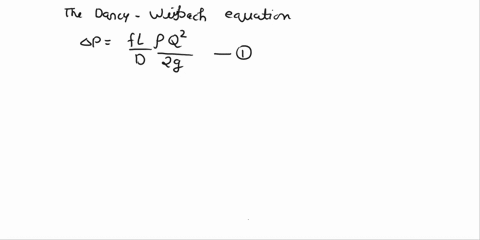 The Darcy - Weisbach equation
ΔP = fL/D ρQ²/2g — ①